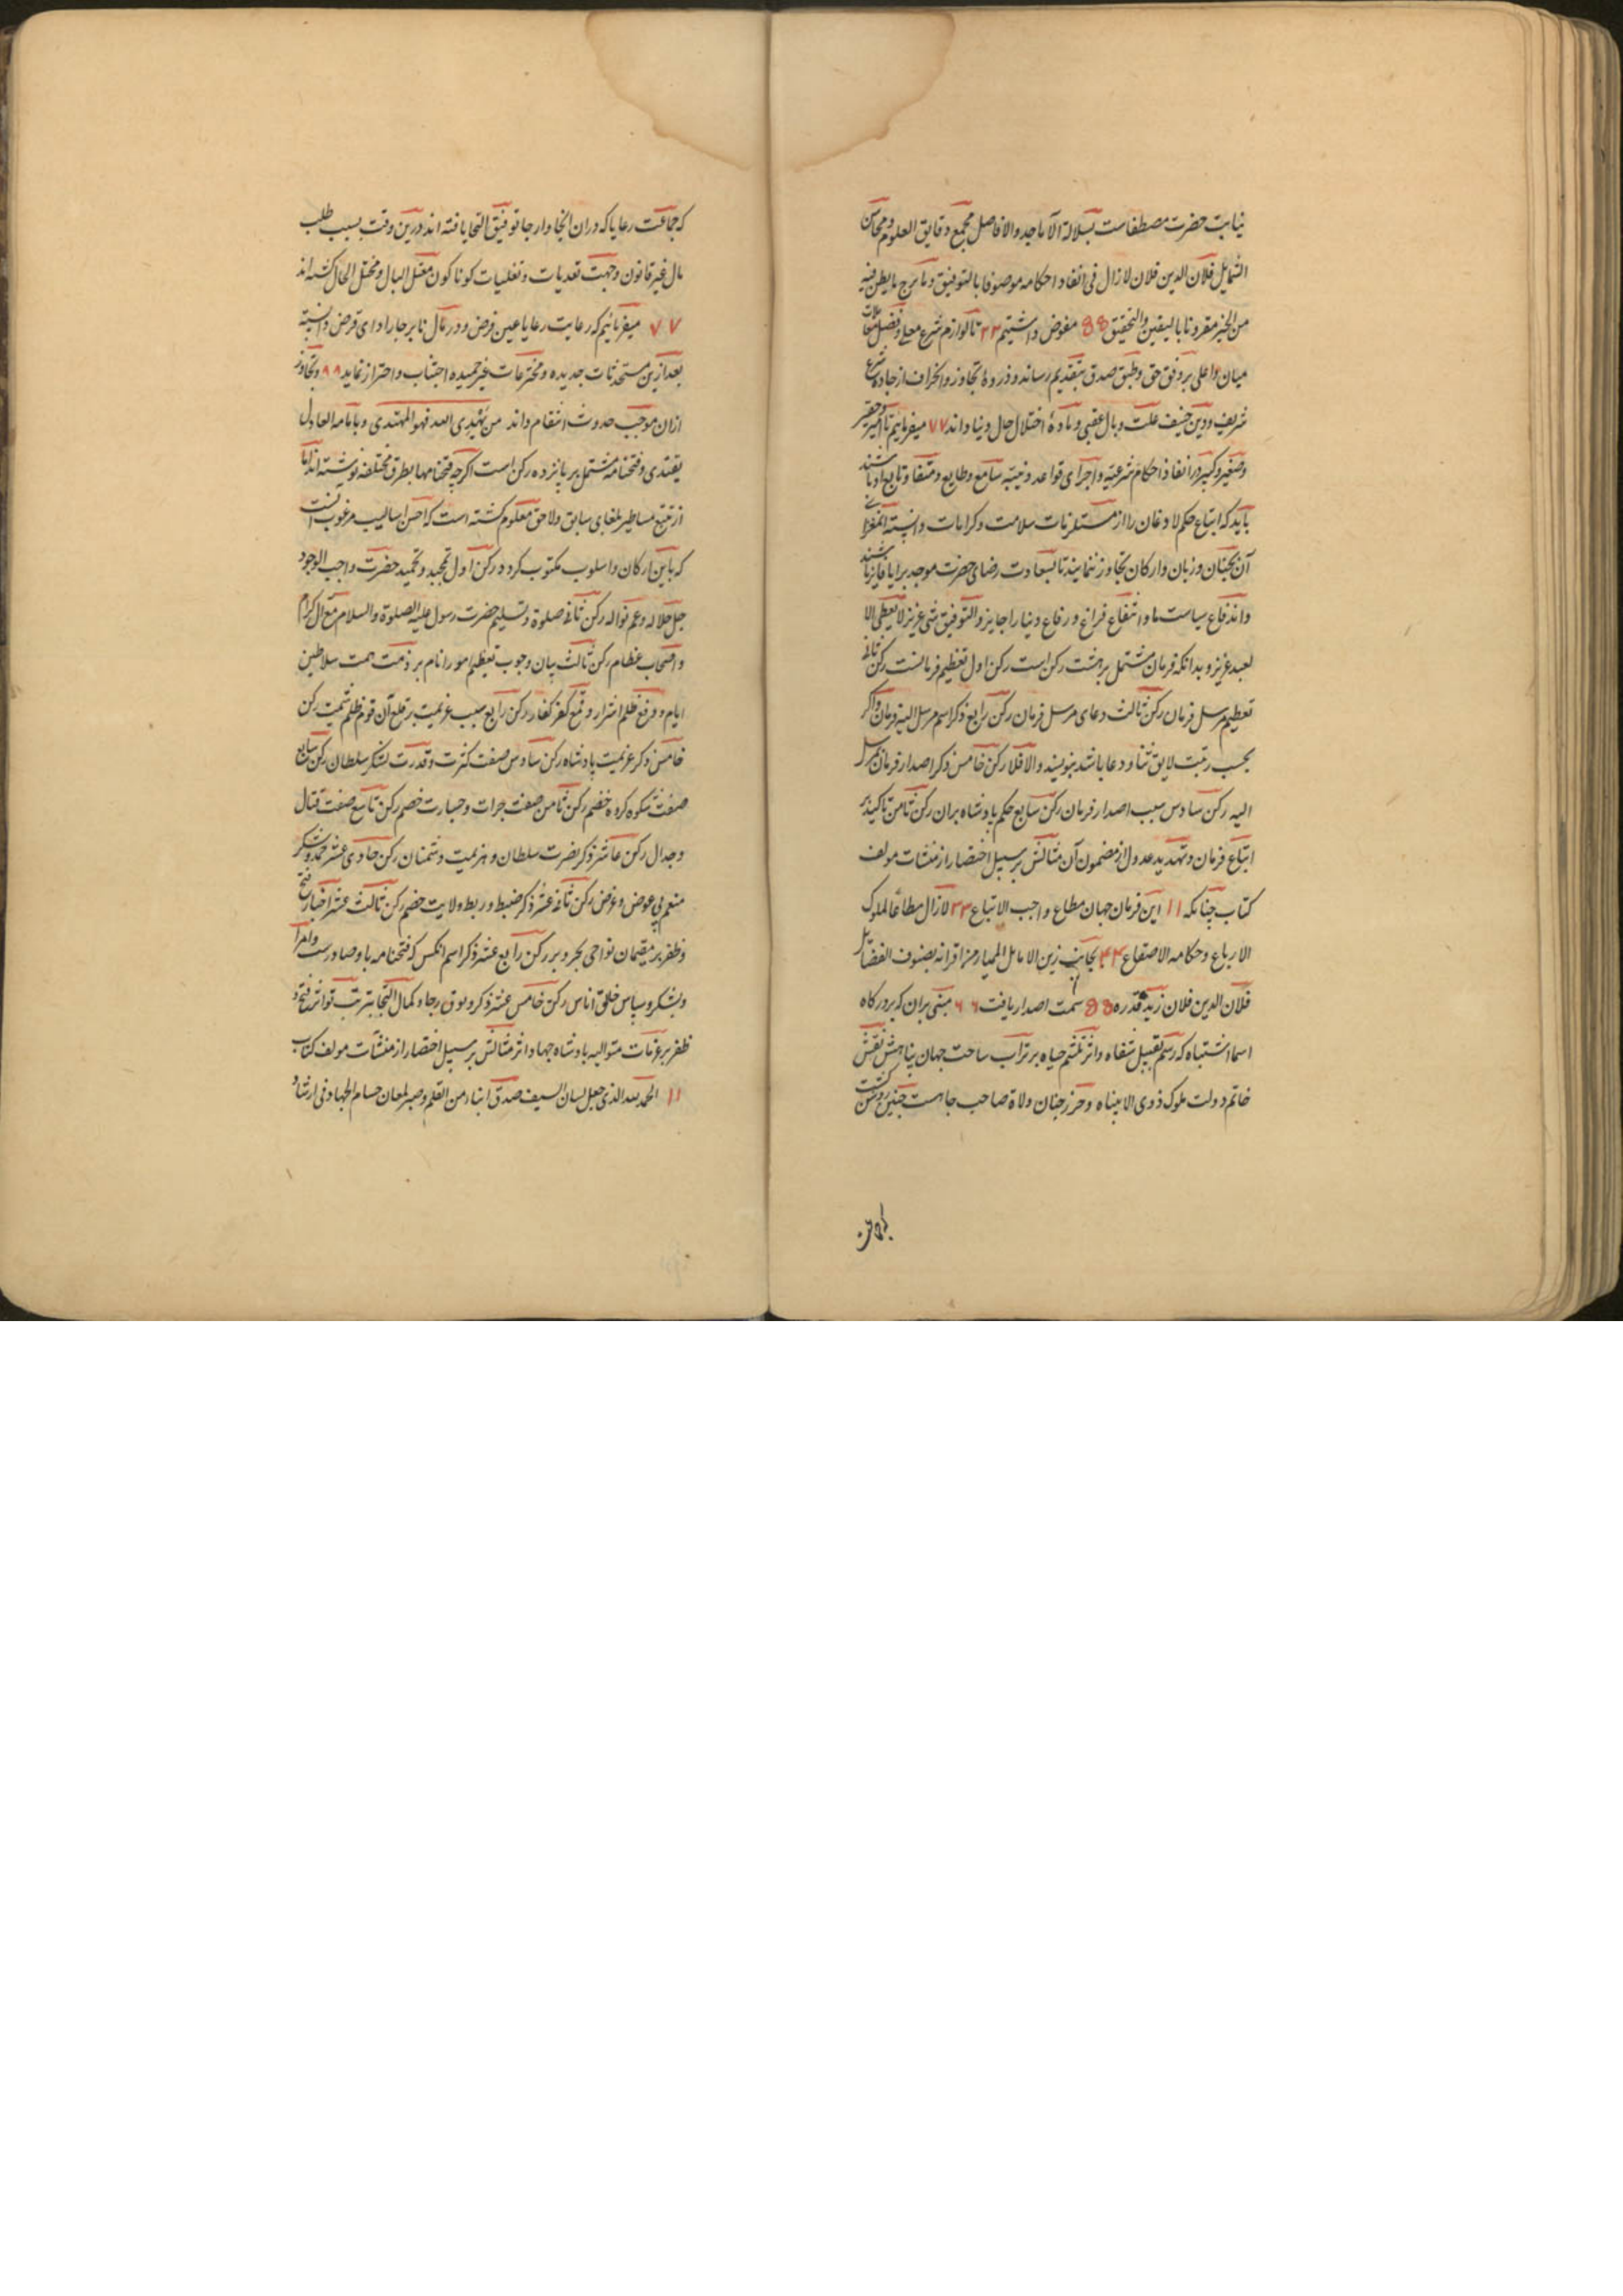 نیابت حضرت مصطفاست بسلالة الاماجد والافاضل مجمع دقایق العلوم ومحاسن
الشمایل فلان الدین فلان لازال فی انفاد احکامه موصوفا بالتوفیق وما برح ما یظن فیه
من الخیر مقرونا بالیقین والتحقیق ۵۵ مفوض داشتیم ۳۳ تا لوازم شرع معلی وفیصل معاملات
میان و اعلی بر وفق حق وطبق صدق بتقدیم رساند و ذروهٔ تجاوز وانحراف از جاده شرع
شریف ودین حنیف علت وبال عقبی ومادهٔ اختلال حال دنیا داند ۷۷ میفرماییم تا امیر وحقیر
وصغیر وکبیر در انفاذ احکام شرعیه واجرای قواعد دینیه سامع وطایع ومنقاد وتابع او باشند
باید که اتباع حکم لا دغان را از مستلزمات سلامت وکرامات دانسته
آن بجنان وزبان وارکان تجاوز ننمایند تا بسعادت رضای حضرت موجد برایا فایز باشند
واندفاع سیاست ما وانتفاع فراغ ورفاع دنیا را جایز والتوفیق شی عزیز لا یعطی الا
لعبد عزیز وبدانکه فرمان مشتمل بر هشت رکن است رکن اول تعظیم فرمانست رکن ثانی
تعظیم مرسل فرمان رکن ثالث دعای مرسل فرمان رکن رابع ذکر اسم مرسل الیه فرمان واگر
بحسب رتبت لایق ثنا ودعا باشد بنویسند والا فلا رکن خامس ذکر اصدار فرمان بمرسل
الیه رکن سادس سبب اصدار فرمان رکن سابع حکم پادشاه بران رکن ثامن تاکید بر
اتباع فرمان وتهدید عدول از مضمون آن مثالش بر سبیل اختصار از منشات مولف
کتاب چنانکه ۱۱ این فرمان جهان مطاع واجب الاتباع ۳۳ لازال مطاعا لملوک
الارباع وحکامه الاصقاع ۴۴ بجانب زین الاماثل الممیاز من اقرانه بصنوف الفضایل
فلان الدین فلان زید قدره ۵۵ سمت اصدار یافت ۶۶ مبنی بران که بر درکاه
اسما اشتباه که رسم تقبیل شفاه واثر تلثیم جباه بر تراب ساحت جهان پناهش نقش
خاتم دولت ملوک ذوی الانتباه وحرز جنان ولاة صاحب جاهست چنین روشن کشت
که جماعت رعایا که دران
که جماعت رعایا که دران انحا وارجا توفیق التجا یافته اند درین وقت بسبب طلب
مال غیر قانون وجهت تعدیات وتغلبات کوناکون مقتل البال ومختل الحال کشته اند
۷۷ میفرمائیم که رعایت رعایا عین فرض ودر مال نابرجا را ادای قرض دانسته
بعد ازین مستحدثات جدیده ومخترعات غیر حمیده اجتناب واحتراز نماید ۹۹ وتجاوز
ازان موجب حدوث انتقام داند من یهدی الله فهو المهتدی وبامامه العادل
یقتدی وفتحنامه مشتمل بر پانزده رکن است اکرچه فتحنامها بطرق مختلفه نوشته اند اما
از تتبع مساطیر بلغای سابق ولاحق معلوم کشته است که احسن اسالیب مرغوب انست
که باین ارکان واسلوب مکتوب کردد رکن اول تمجید وتحمید حضرت واجب الوجود
جل جلاله وعم نواله رکن ثانی صلوة وتسلیم حضرت رسول علیه الصلوة والسلام مع آل کرام
واصحاب عظام رکن ثالث بیان وجوب تعظیم امور انام بر ذمت همت سلاطین
ایام ودفع ظلم اشرار وقمع کفر کفار رکن رابع سبب عزیمت بر قلع آن قوم ظلم شیمت رکن
خامس ذکر عزیمت پادشاه رکن سادس صفت کثرت وقدرت لشکر سلطان رکن سابع
صفت شکوه کروه خصم رکن ثامن صفت جرات وجسارت خصم رکن تاسع صفت قتال
وجدال رکن عاشر ذکر نصرت سلطان وهزیمت دشمنان رکن حادی عشر حمد وشکر
منعم بی عوض وغرض رکن ثانی عشر ذکر ضبط وربط ولایت خصم رکن ثالث عشر اخبار فتح
وظفر بر مقیمان نواحی بحر وبر رکن رابع عشر ذکر اسم انکس که فتحنامه باو صادرست وامرا
وبشکر وسپاس خلق اناس رکن خامس عشر ذکر وثوق رجا وکمال التجا بترتب تواتر فتح و
ظفر بر عزمات متوالیه پادشاه جهاد اثر مثالش بر سبیل اختصار از منشات مولف کتاب
۱۱ الحمد لله الذی جعل لسان السیف صدق انباء من القلم وصیر لمعان حسام الجهاد فی ارشاد